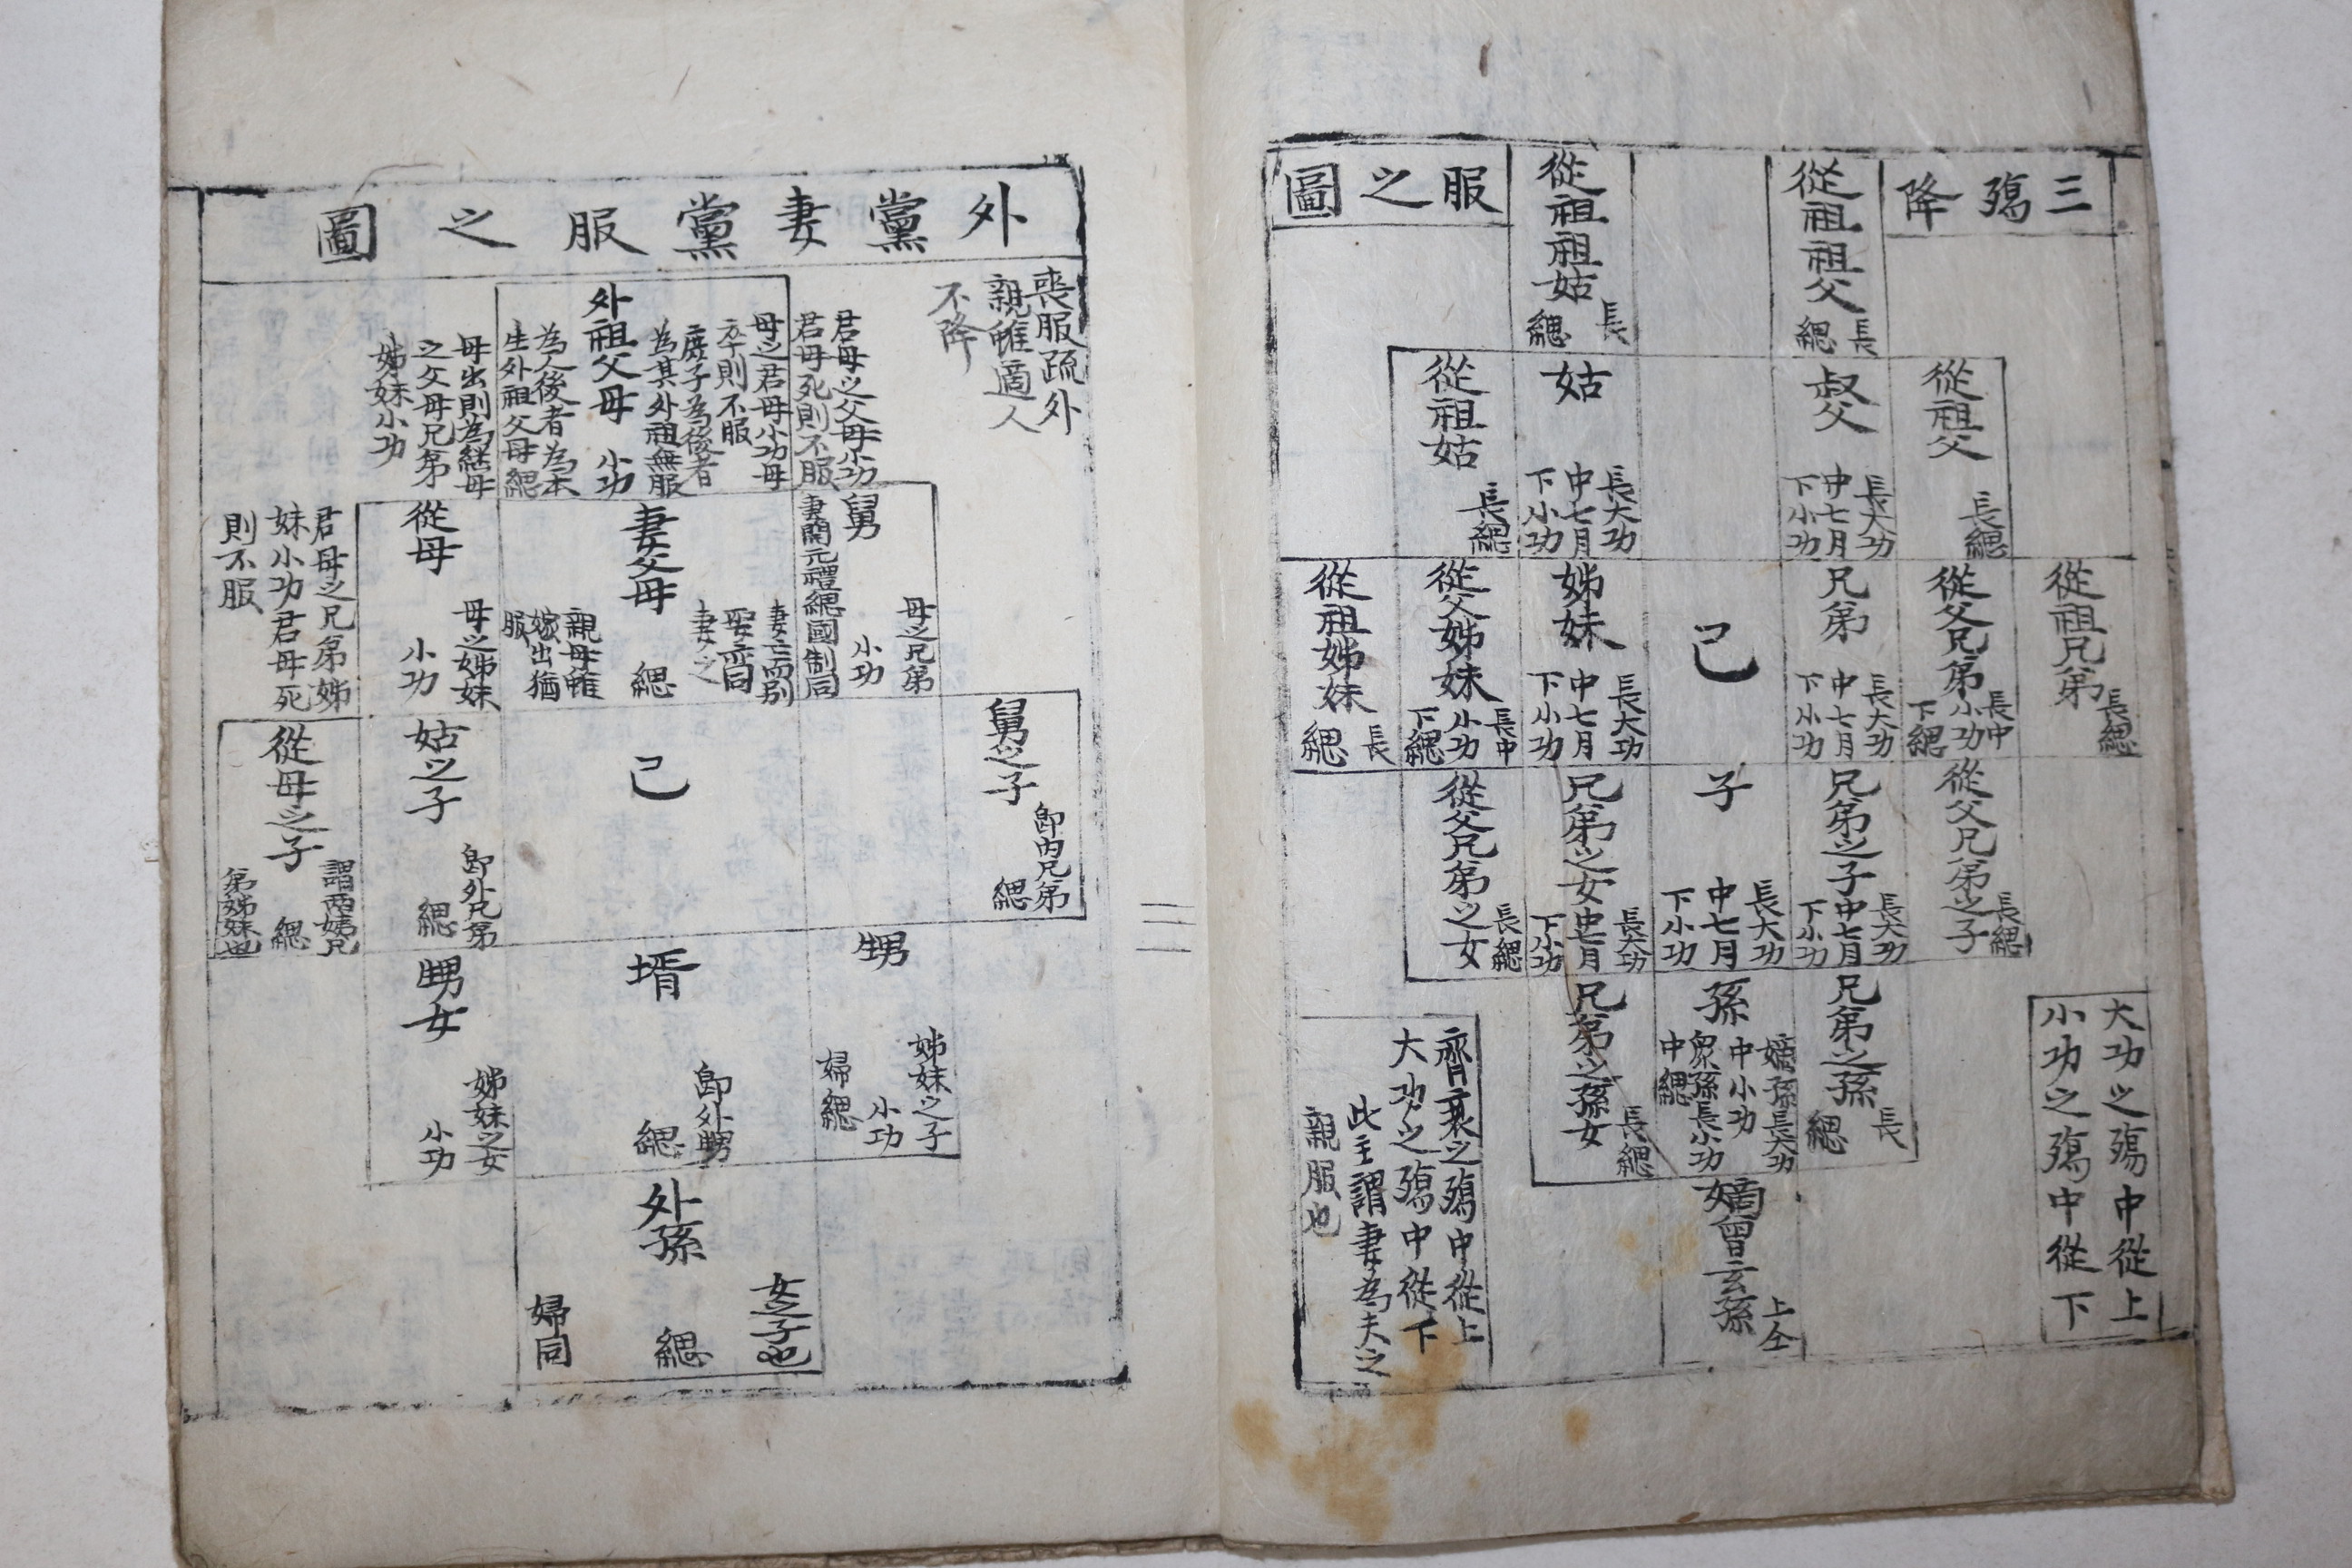 三殤降
從祖祖父
長
緦
從祖祖姑
長
緦
服之圖
從祖父
長緦
叔父
長大功
中七月
下小功
姑
長大功
中七月
下小功
從祖姑
長緦
從祖兄弟
長緦
從父兄弟
長中
小功
下緦
兄弟
長大功
中七月
下小功
己
姊妹
長大功
中七月
下小功
從父姊妹
長中
小功
下緦
從祖姊妹
長
緦
從父兄弟之子
長緦
兄弟之子
長大功
中七月
下小功
子
長大功
中七月
下小功
兄弟之女
長大功
中七月
下小功
從父兄弟之女
長緦
大功之殤中從上
小功之殤中從下
兄弟之孫
長
緦
孫
嫡孫長大功
中小功
衆孫長小功
中緦
兄弟之孫女
長緦
嫡曾玄孫
上仝
齊衰之殤中從上
大功之殤中從下
此主謂妻為夫之
親服也
外黨妻黨服之圖
喪服疏外
親雖適人
不降
君母之父母小功
君母死則不服
外祖父母
小功
母之君母小功母
卒則不服
庶子為後者
為其外祖無服
為人後者為本
生外祖父母緦
母出則為繼母
之父母兄弟
姊妹小功
舅
母之兄弟
小功
妻開元禮緦國制同
妻父母
緦
妻亡而別
娶亦同
妻之
親母雖
嫁出猶
服
從母
母之姊妹
小功
君母之兄弟姊
妹小功君母死
則不服
舅之子
即內兄弟
緦
己
姑之子
即外兄弟
緦
從母之子
謂兩姨兄
緦
弟姊妹也
甥
姊妹之子
小功
婦緦
壻
即外甥
緦
甥女
姊妹之女
小功
外孫
女之子也
緦
婦同